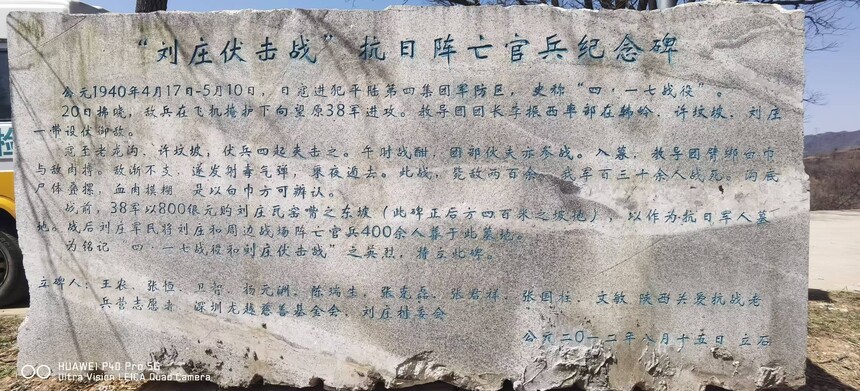 “刘庄伏击战”抗日阵亡官兵纪念碑
公元1940年4月17日-5月10日，日寇进犯平陆第四集团军防区，史称“四·一七战役”。
20日拂晓，敌兵在飞机掩护下向望原38军进攻。教导团团长李振西率部在韩岭、许坟坡，刘庄
一带设伏御敌。
寇至老龙沟、许坟坡，伏兵四起夹击之。午时战酣，团部伙夫亦参战。入暮，教导团臂绑白巾
与敌肉搏。敌渐不支，遂发射毒气弹，乘夜遁去。此战，毙敌两百余，我军百三十余人战死。沟底
尸体叠摞，血肉模糊 是以白巾方可辨认。
战前，38军以800银元购刘庄瓦窑嘴之东坡（此碑正后方四百米之坡地），以作为抗日军人墓
地。战后刘庄军民将刘庄和周边战场阵亡官兵400余人葬于此墓地。
为铭记 四·一七战役和刘庄伏击战”之英烈，特立此碑。
立碑人：王农、张恒、卫智、杨元洲、陈瑞生，张东磊、张君祥，张国柱，文敏 陕西关爱抗战老
兵营志愿者 深圳龙越慈善基金会，刘庄村委会
公元二〇一二年八月十五日 立石
HUAWEI P40 Pro 5G
Ultra Vision LEICA Quad Camera